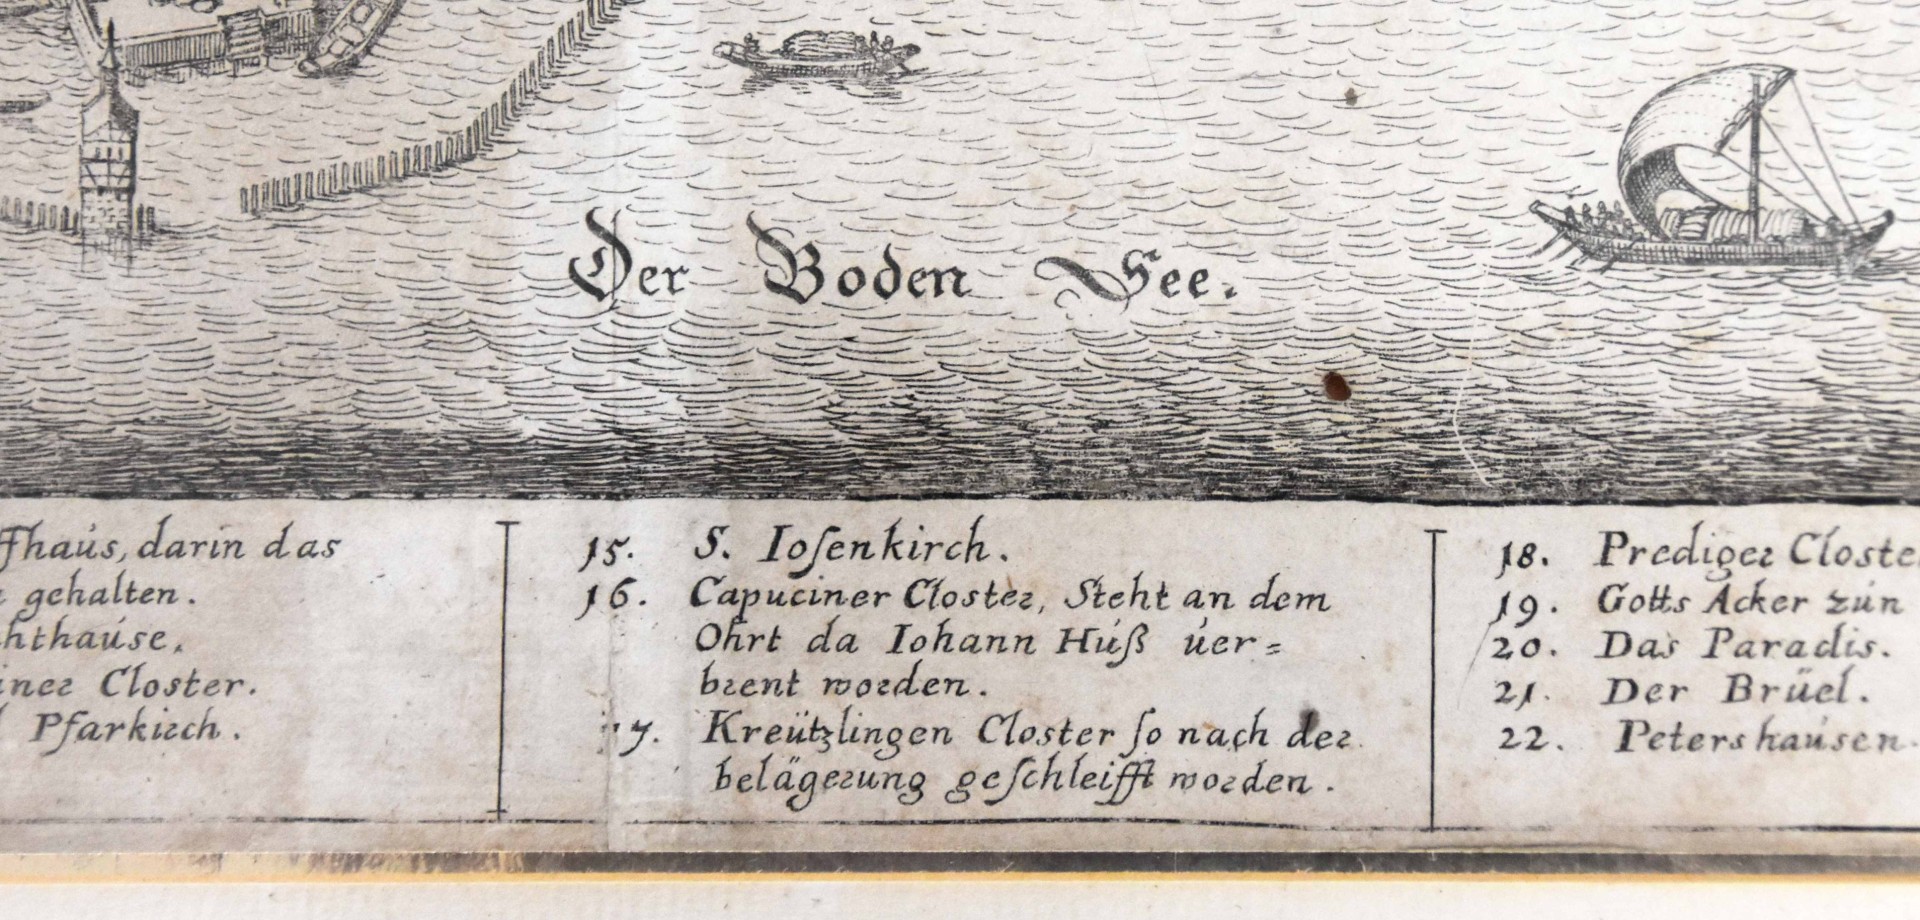 Der Boden See.
ffhaus, darin das
gehalten.
hthause.
iner Closter.
Pfarkirch.
15. S. Iosenkirch.
16. Capuciner Closter, Steht an dem
Ohrt da Iohann Huß uer=
brent worden.
17. Kreützlingen Closter so nach der
belägerung geschleifft worden.
18. Prediger Closte
19. Gotts Acker zun
20. Das Paradis.
21. Der Brüel.
22. Petershausen.